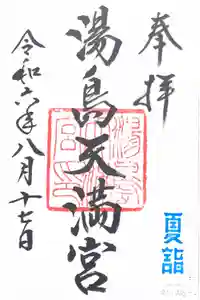 奉拝
湯島天満宮
令和六年八月十七日
夏詣